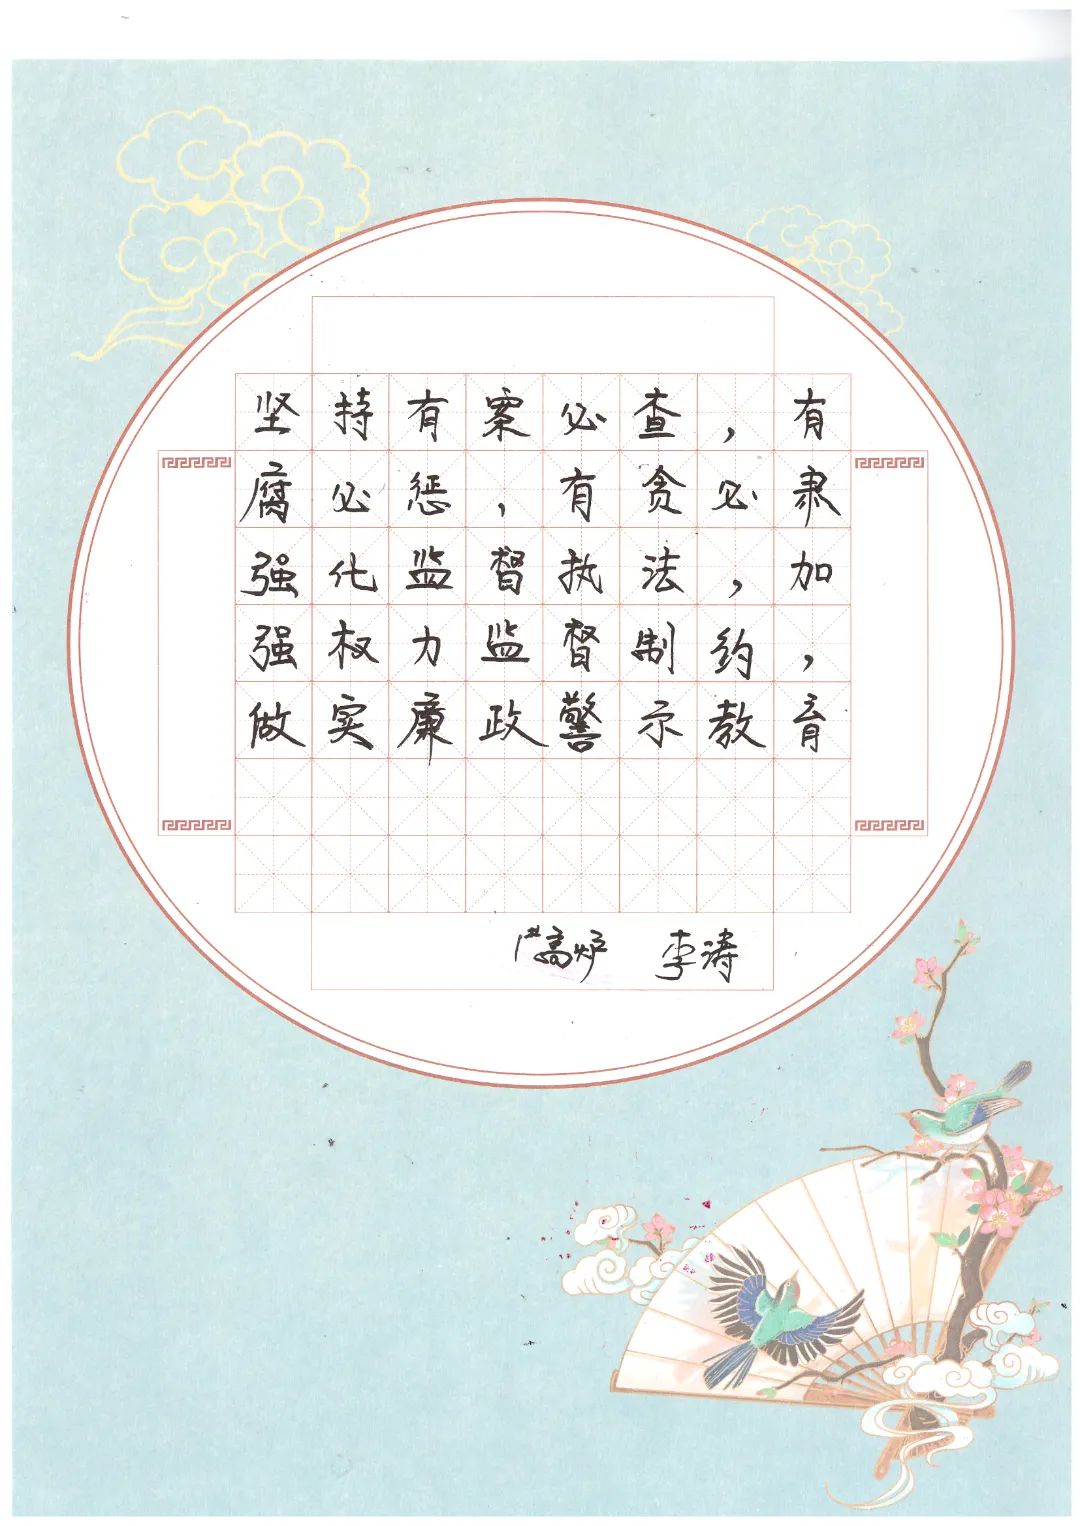 坚持有案必查，有
腐必惩，有贪必肃
强化监督执法，加
强权力监督制约，
做实廉政警示教育
1#高炉 李涛